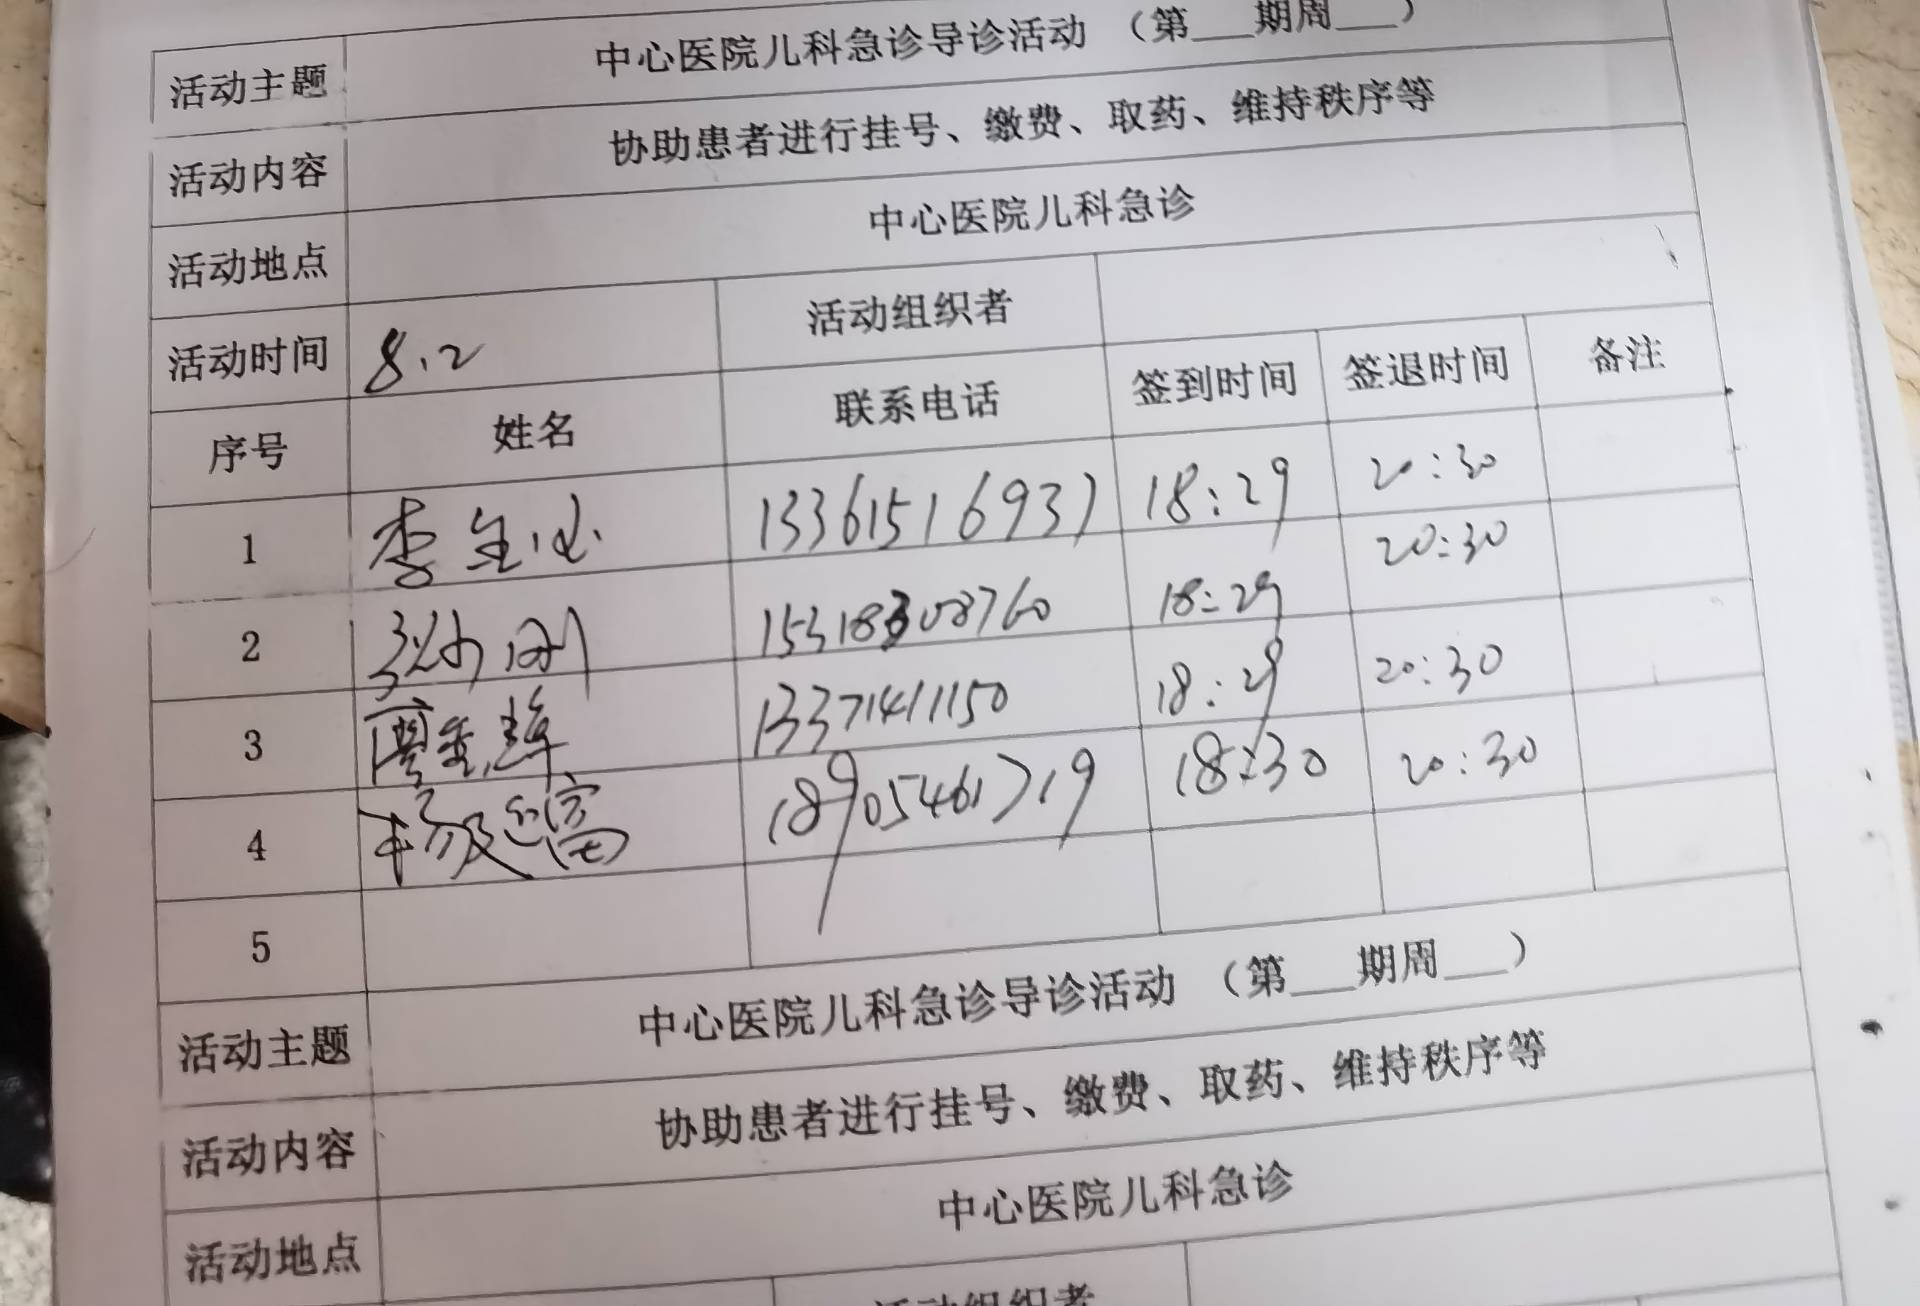 活动主题 中心医院儿科急诊导诊活动 (第___期周___)
活动内容 协助患者进行挂号、缴费、取药、维持秩序等
活动地点 中心医院儿科急诊
活动时间 8.2 活动组织者
序号 姓名 联系电话 签到时间 签退时间 备注
1 李 13361516937 18:29 20:30
2 15318308760 18:29 20:30
3 13371411150 18:29 20:30
4 18905461719 18:30 20:30
5
活动主题 中心医院儿科急诊导诊活动 (第___期周___)
活动内容 协助患者进行挂号、缴费、取药、维持秩序等
活动地点 中心医院儿科急诊
活动组织者